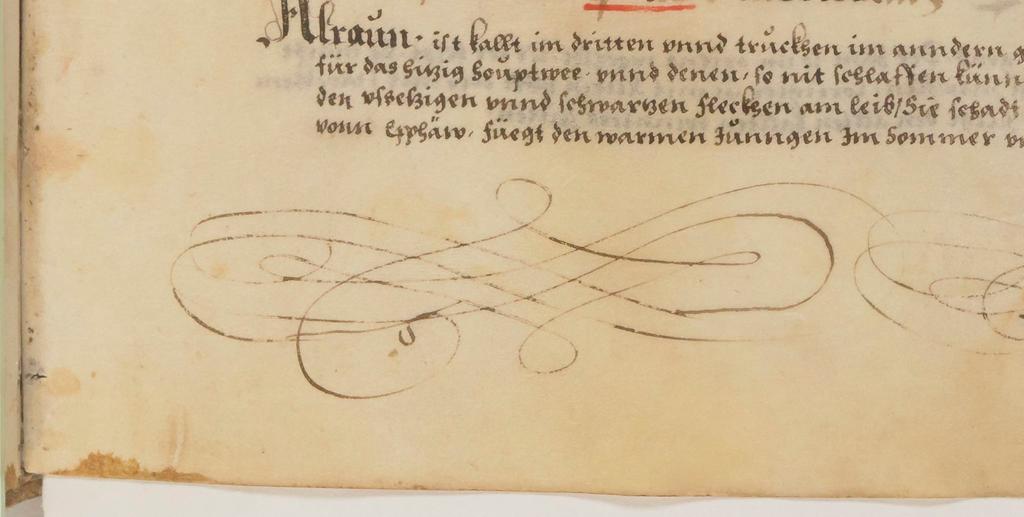 Alraun· ist kallt im dritten vnnd truckhen im anndern
für das hitzig houptwee· vnnd denen· so nit schlaffen künn
den vssetzigen vnnd schwartzen fleckhen am leib/ Sie schadt
vonn Epphäw· füegt den warmen Zŭnngen Im Sommer